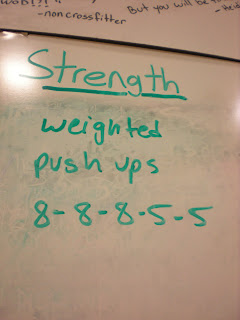 -noncrossfitter
But you will be
Strength
weighted
push ups
8-8-8-5-5